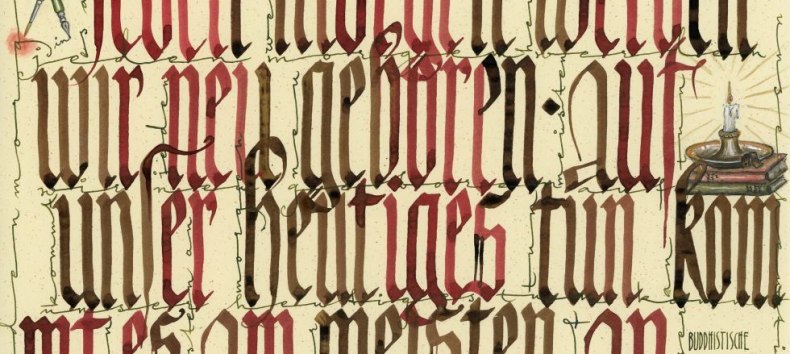 jeden morgen werden
wir neu geboren · auf
unser heutiges tun kom
mt es am meisten an
BUDDHISTISCHE